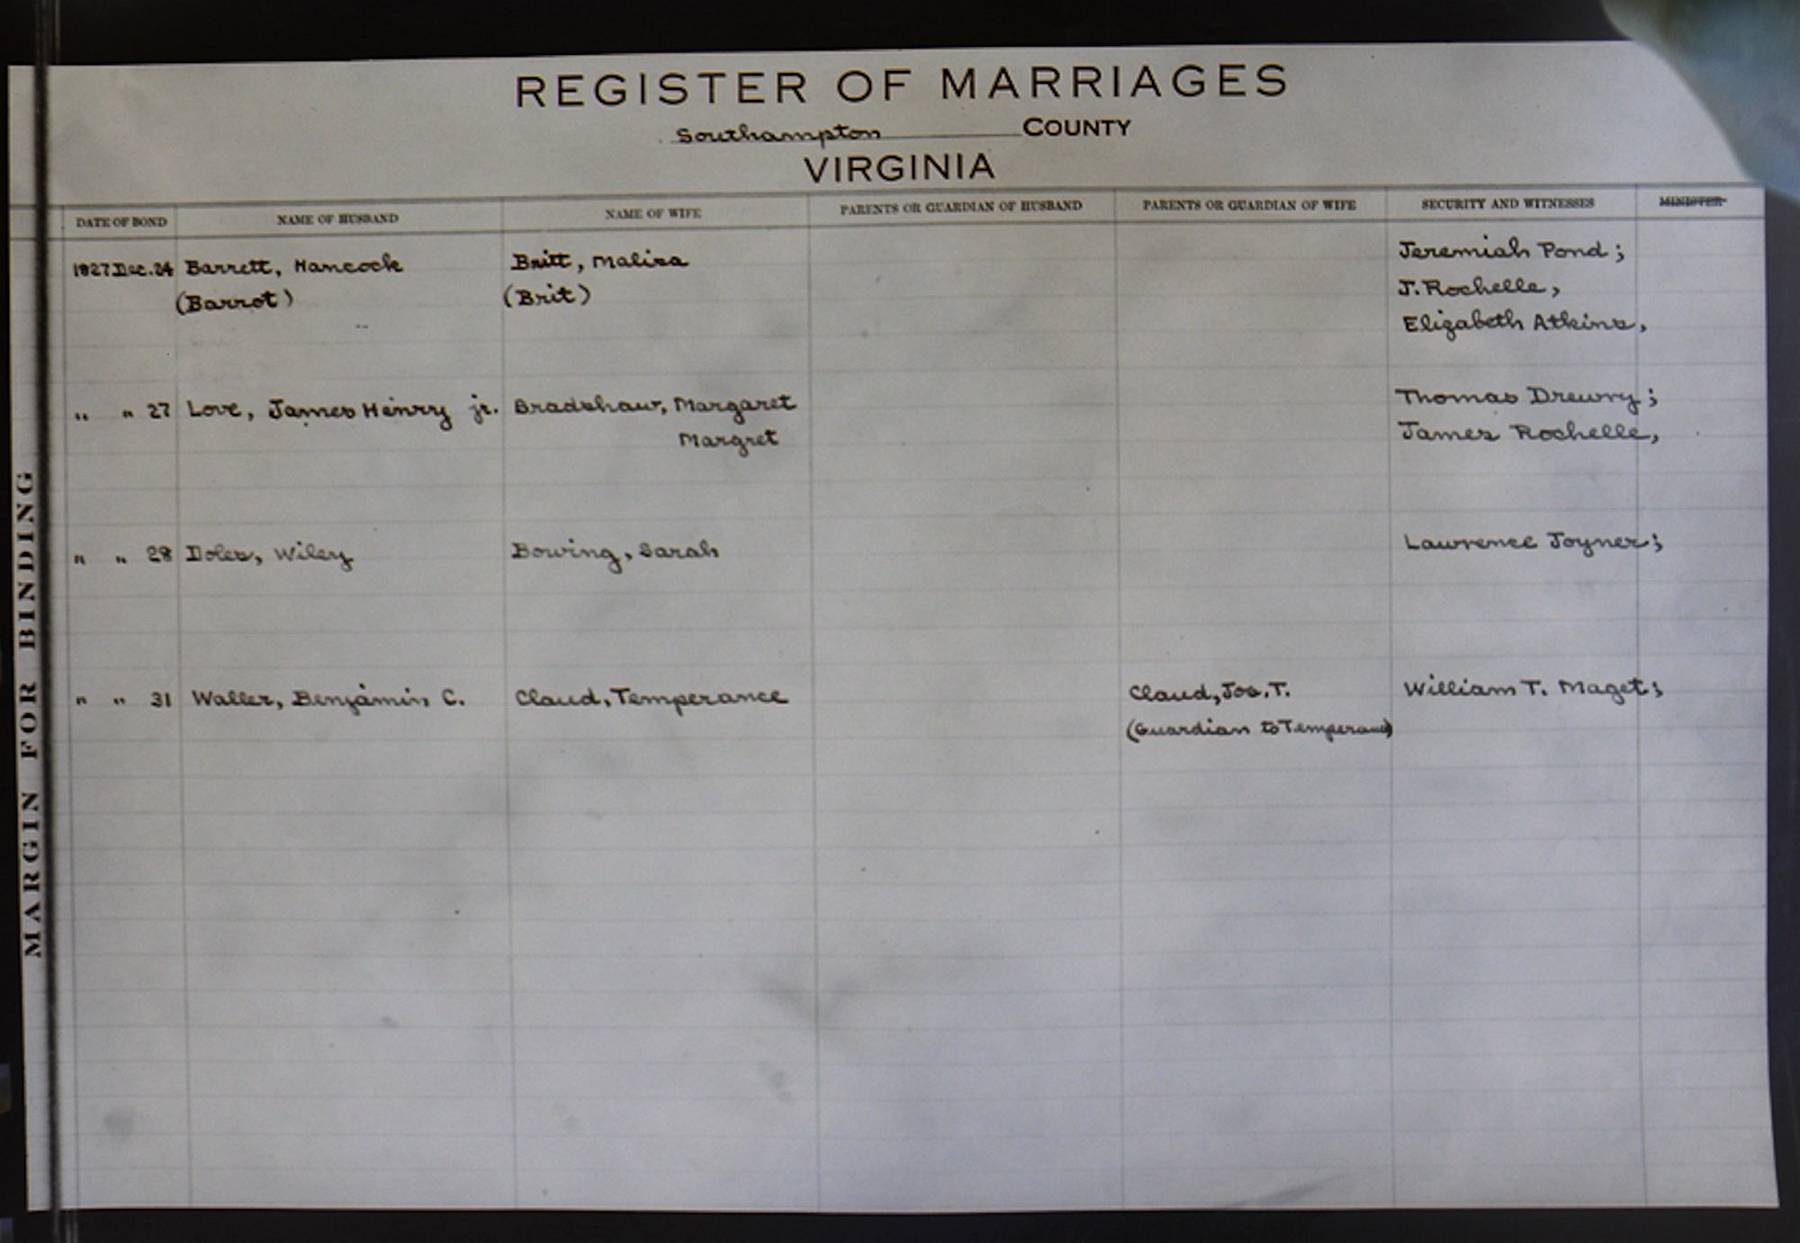 REGISTER OF MARRIAGES
Southampton COUNTY
VIRGINIA
DATE OF BOND NAME OF HUSBAND NAME OF WIFE PARENTS OR GUARDIAN OF HUSBAND PARENTS OR GUARDIAN OF WIFE SECURITY AND WITNESSES MINISTER
1827 Dec. 24 Barrett, Hancock Britt, Maliza Jeremiah Pond;
(Barrot) (Brit) J. Rochelle,
Elizabeth Atkins,
" " 27 Love, James Henry jr. Bradshaw, Margaret Thomas Drewry;
Margret James Rochelle,
" " 28 Doles, Wiley Bowing, Sarah Lawrence Joyner;
" " 31 Waller, Benjamin C. Claud, Temperance Claud, Jos. T. William T. Maget;
(Guardian to Temperance)
MARGIN FOR BINDING